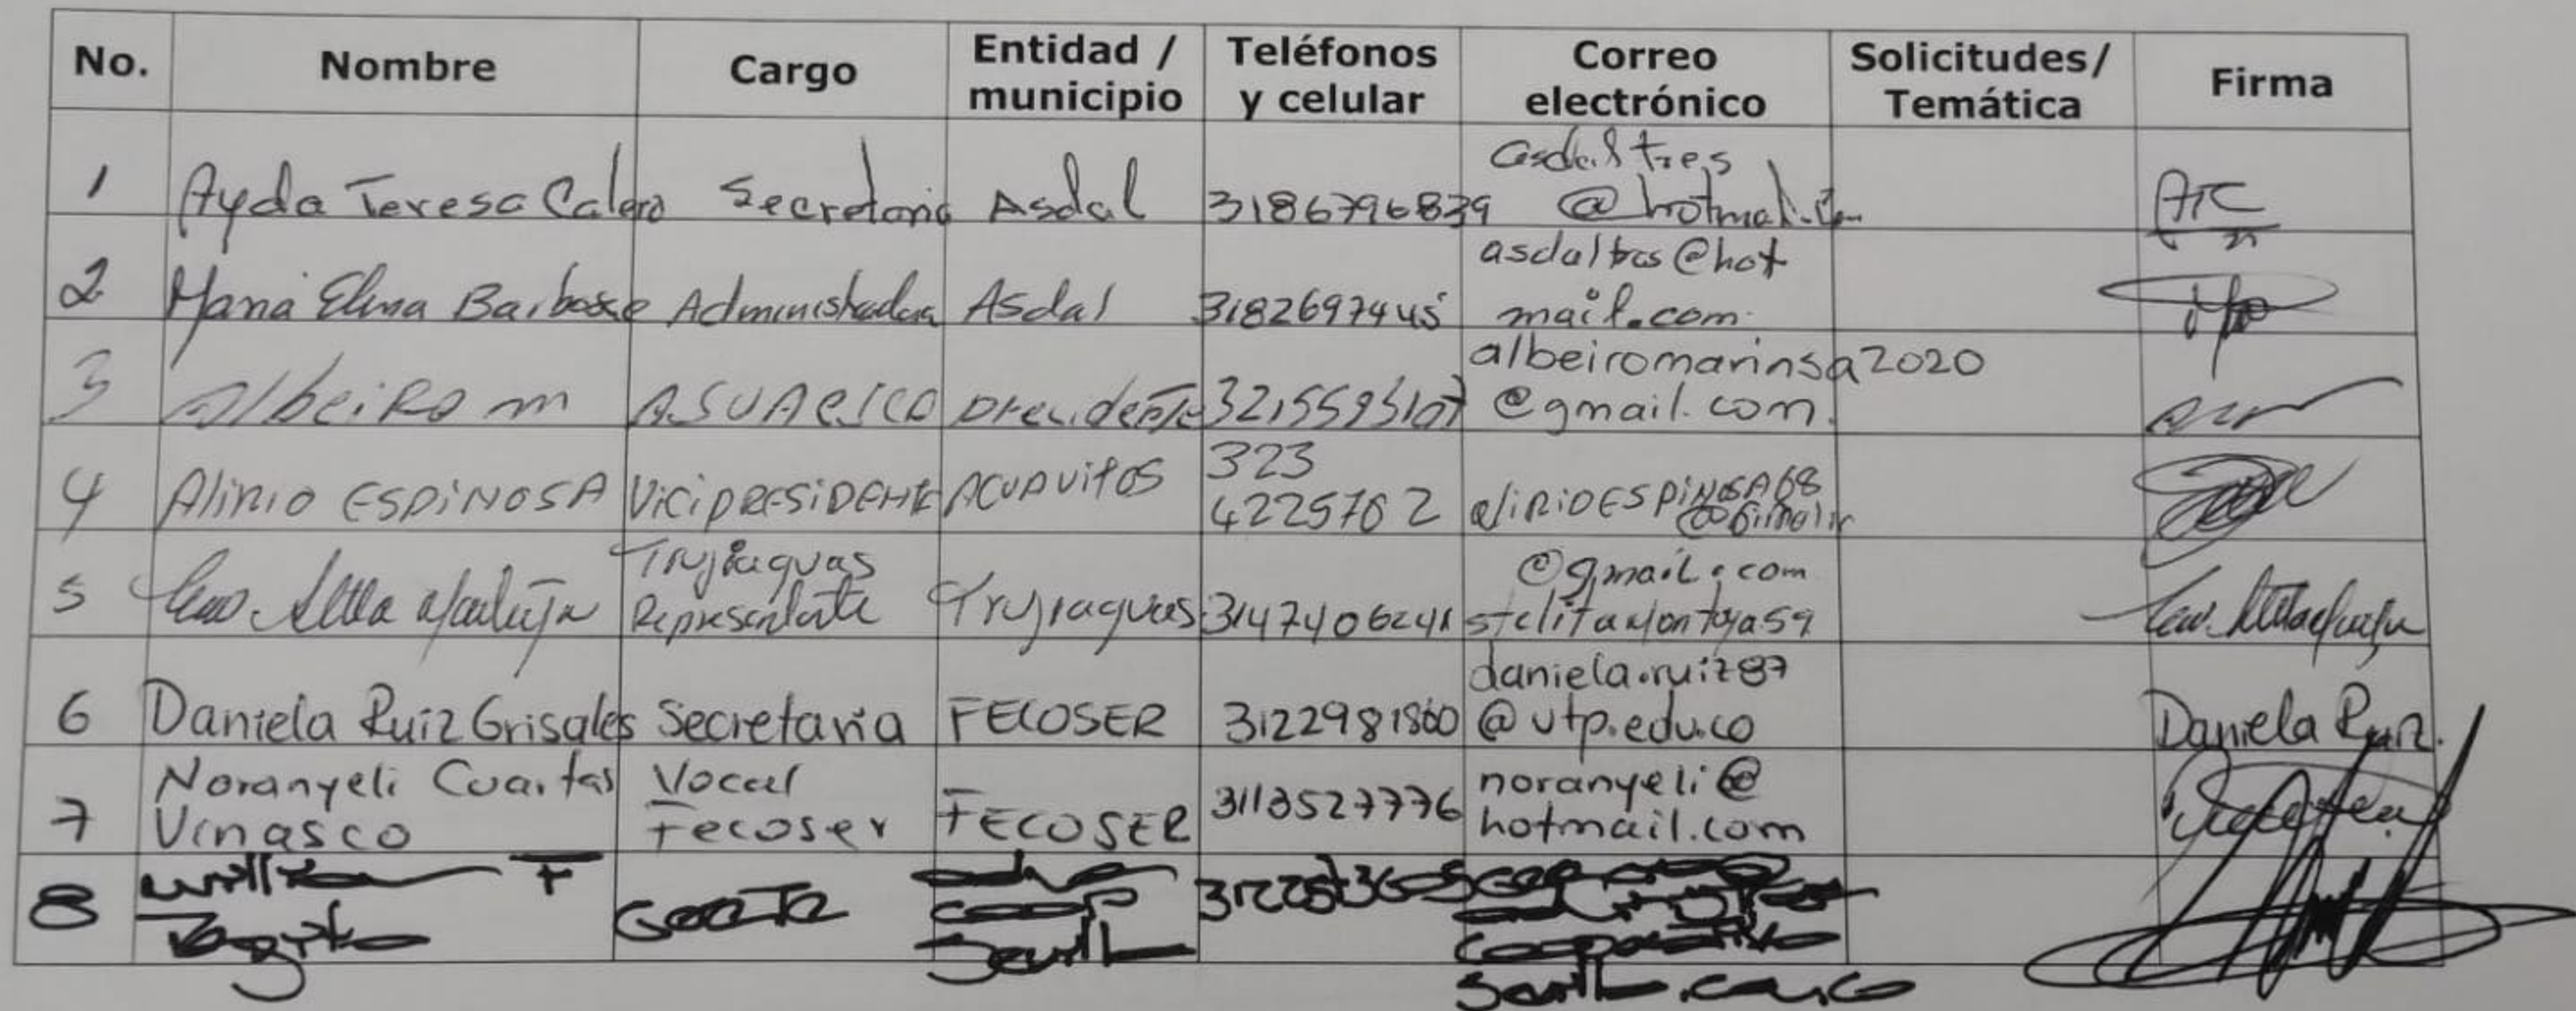 No. Nombre Cargo Entidad / municipio Teléfonos y celular Correo electrónico Solicitudes/ Temática Firma
1 Ayda Teresa Calero Secretaria Asdal 3186796839 asdaltres @hotmail.com ATC
2 Maria Elina Barbosa Administradora Asdal 3182697445 asdaltres@hot mail.com
3 albeiRo m ASUAESCO precidente 3215593107 albeiromarinsa2020 @gmail.com
4 Alirio ESPiNOSA ViCiPRESiDENTE ACUAVITOS 323 4225762 aliRiOESPiNOSA68
5 Trujiaguas Representante Trujiaguas 3147406241 @gmail.com stelitamontoya59
6 Daniela Ruiz Grisales Secretaria FECOSER 3122981860 daniela.ruiz87 @utp.edu.co Daniela Ruiz.
7 Noranyeli Cuartas Vinasco Vocal Fecoser FECOSER 3113527776 noranyeli@ hotmail.com
8